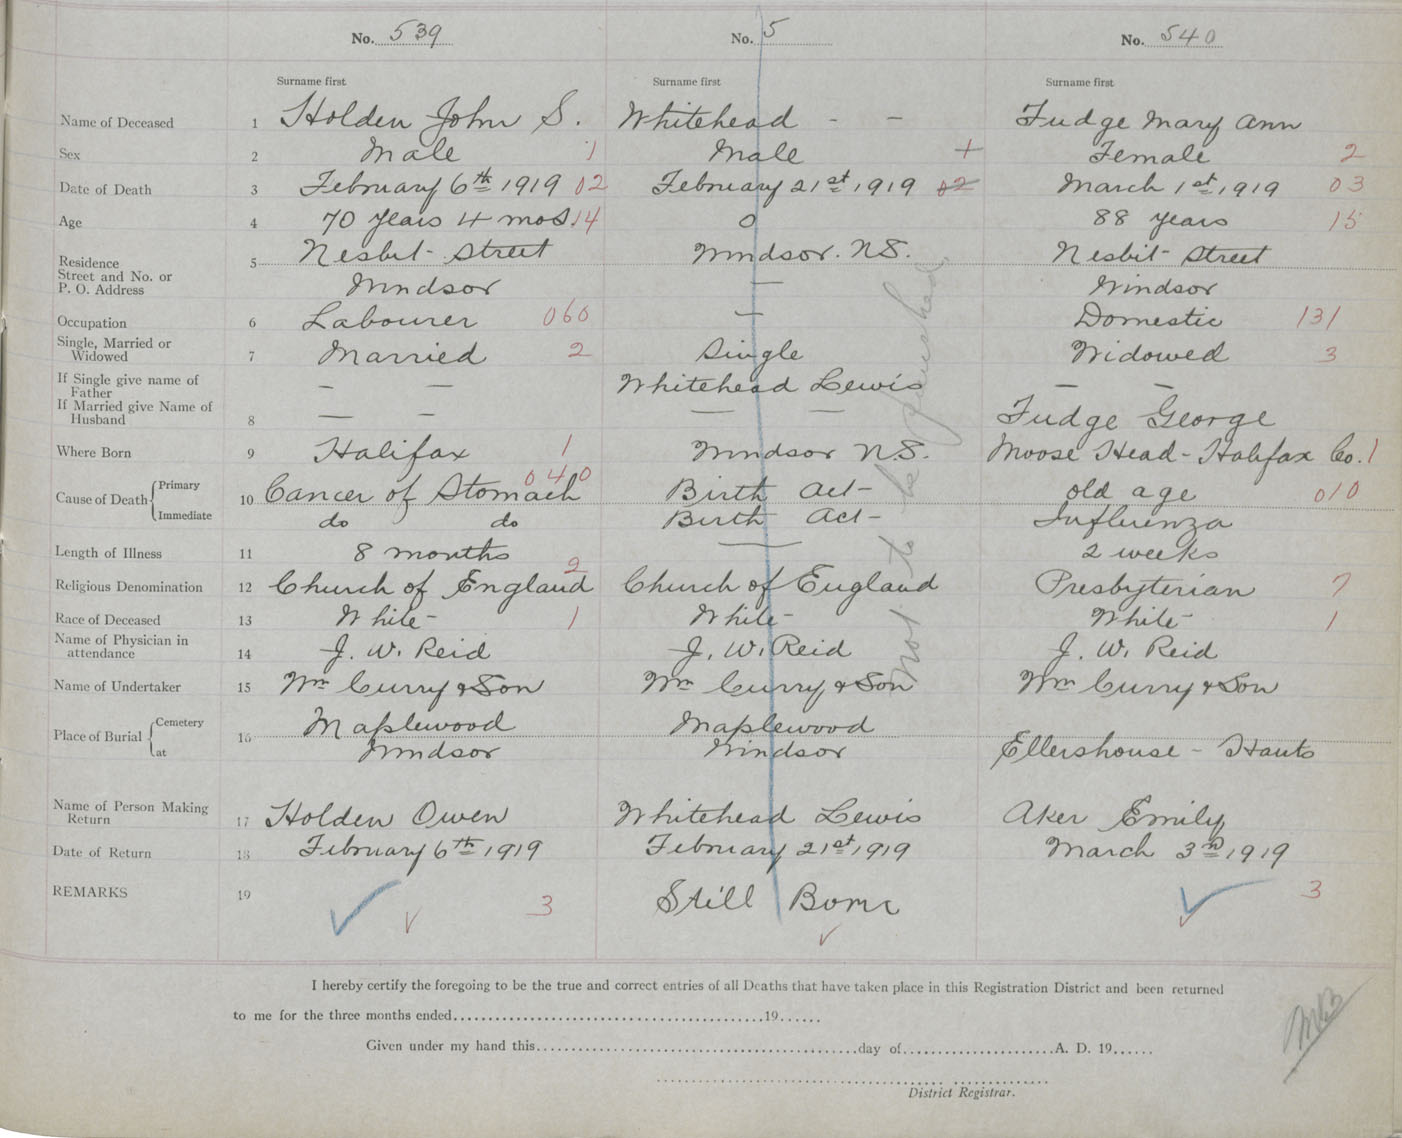 No. 539 No. 5 No. 540
Surname first Surname first Surname first
Name of Deceased 1 Holden John S. Whitehead - - Fudge Mary Ann
Sex 2 Male 1 Male + Female 2
Date of Death 3 February 6th 1919 02 February 21st 1919 02 March 1st 1919 03
Age 4 70 years 4 mos. 14 0 88 years 15
Residence 5 Nesbit Street Windsor. N.S. Nesbit Street
Street and No. or
P. O. Address Windsor — Windsor
Occupation 6 Labourer 060 — Domestic 131
Single, Married or
Widowed 7 Married 2 Single Widowed 3
If Single give name of
Father — — Whitehead Lewis — —
If Married give Name of
Husband 8 — — — — Fudge George
Where Born 9 Halifax 1 Windsor N.S. Moose Head - Halifax Co. 1
Cause of Death Primary 10 Cancer of Stomach 040 Birth Act- old age 010
Immediate do do Birth Act- Influenza
Length of Illness 11 8 months — 2 weeks
Religious Denomination 12 Church of England 2 Church of England Presbyterian 7
Race of Deceased 13 White 1 White White 1
Name of Physician in
attendance 14 J. W. Reid J. W. Reid J. W. Reid
Name of Undertaker 15 Wm Curry & Son Wm Curry & Son Wm Curry & Son
Place of Burial Cemetery 16 Maplewood Maplewood
at Windsor Windsor Ellershouse - Hants
Name of Person Making
Return 17 Holden Owen Whitehead Lewis Aker Emily
Date of Return 18 February 6th 1919 February 21st 1919 March 3rd 1919
REMARKS 19 3 Still Born 3
not to be punched
I hereby certify the foregoing to be the true and correct entries of all Deaths that have taken place in this Registration District and been returned
to me for the three months ended........19......
Given under my hand this........day of........A. D. 19......
District Registrar.